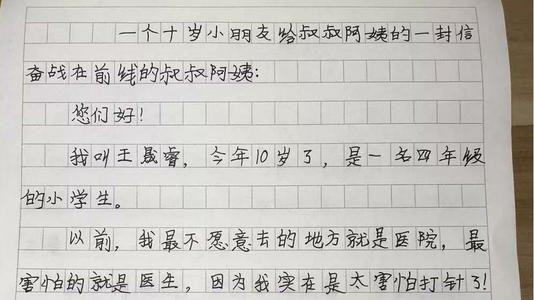 一个十岁小朋友给叔叔阿姨的一封信
奋战在前线的叔叔阿姨：
您们好！
我叫王晟睿，今年10岁了，是一名四年级
的小学生。
以前，我最不愿意去的地方就是医院，最
害怕的就是医生，因为我实在是太害怕打针了！